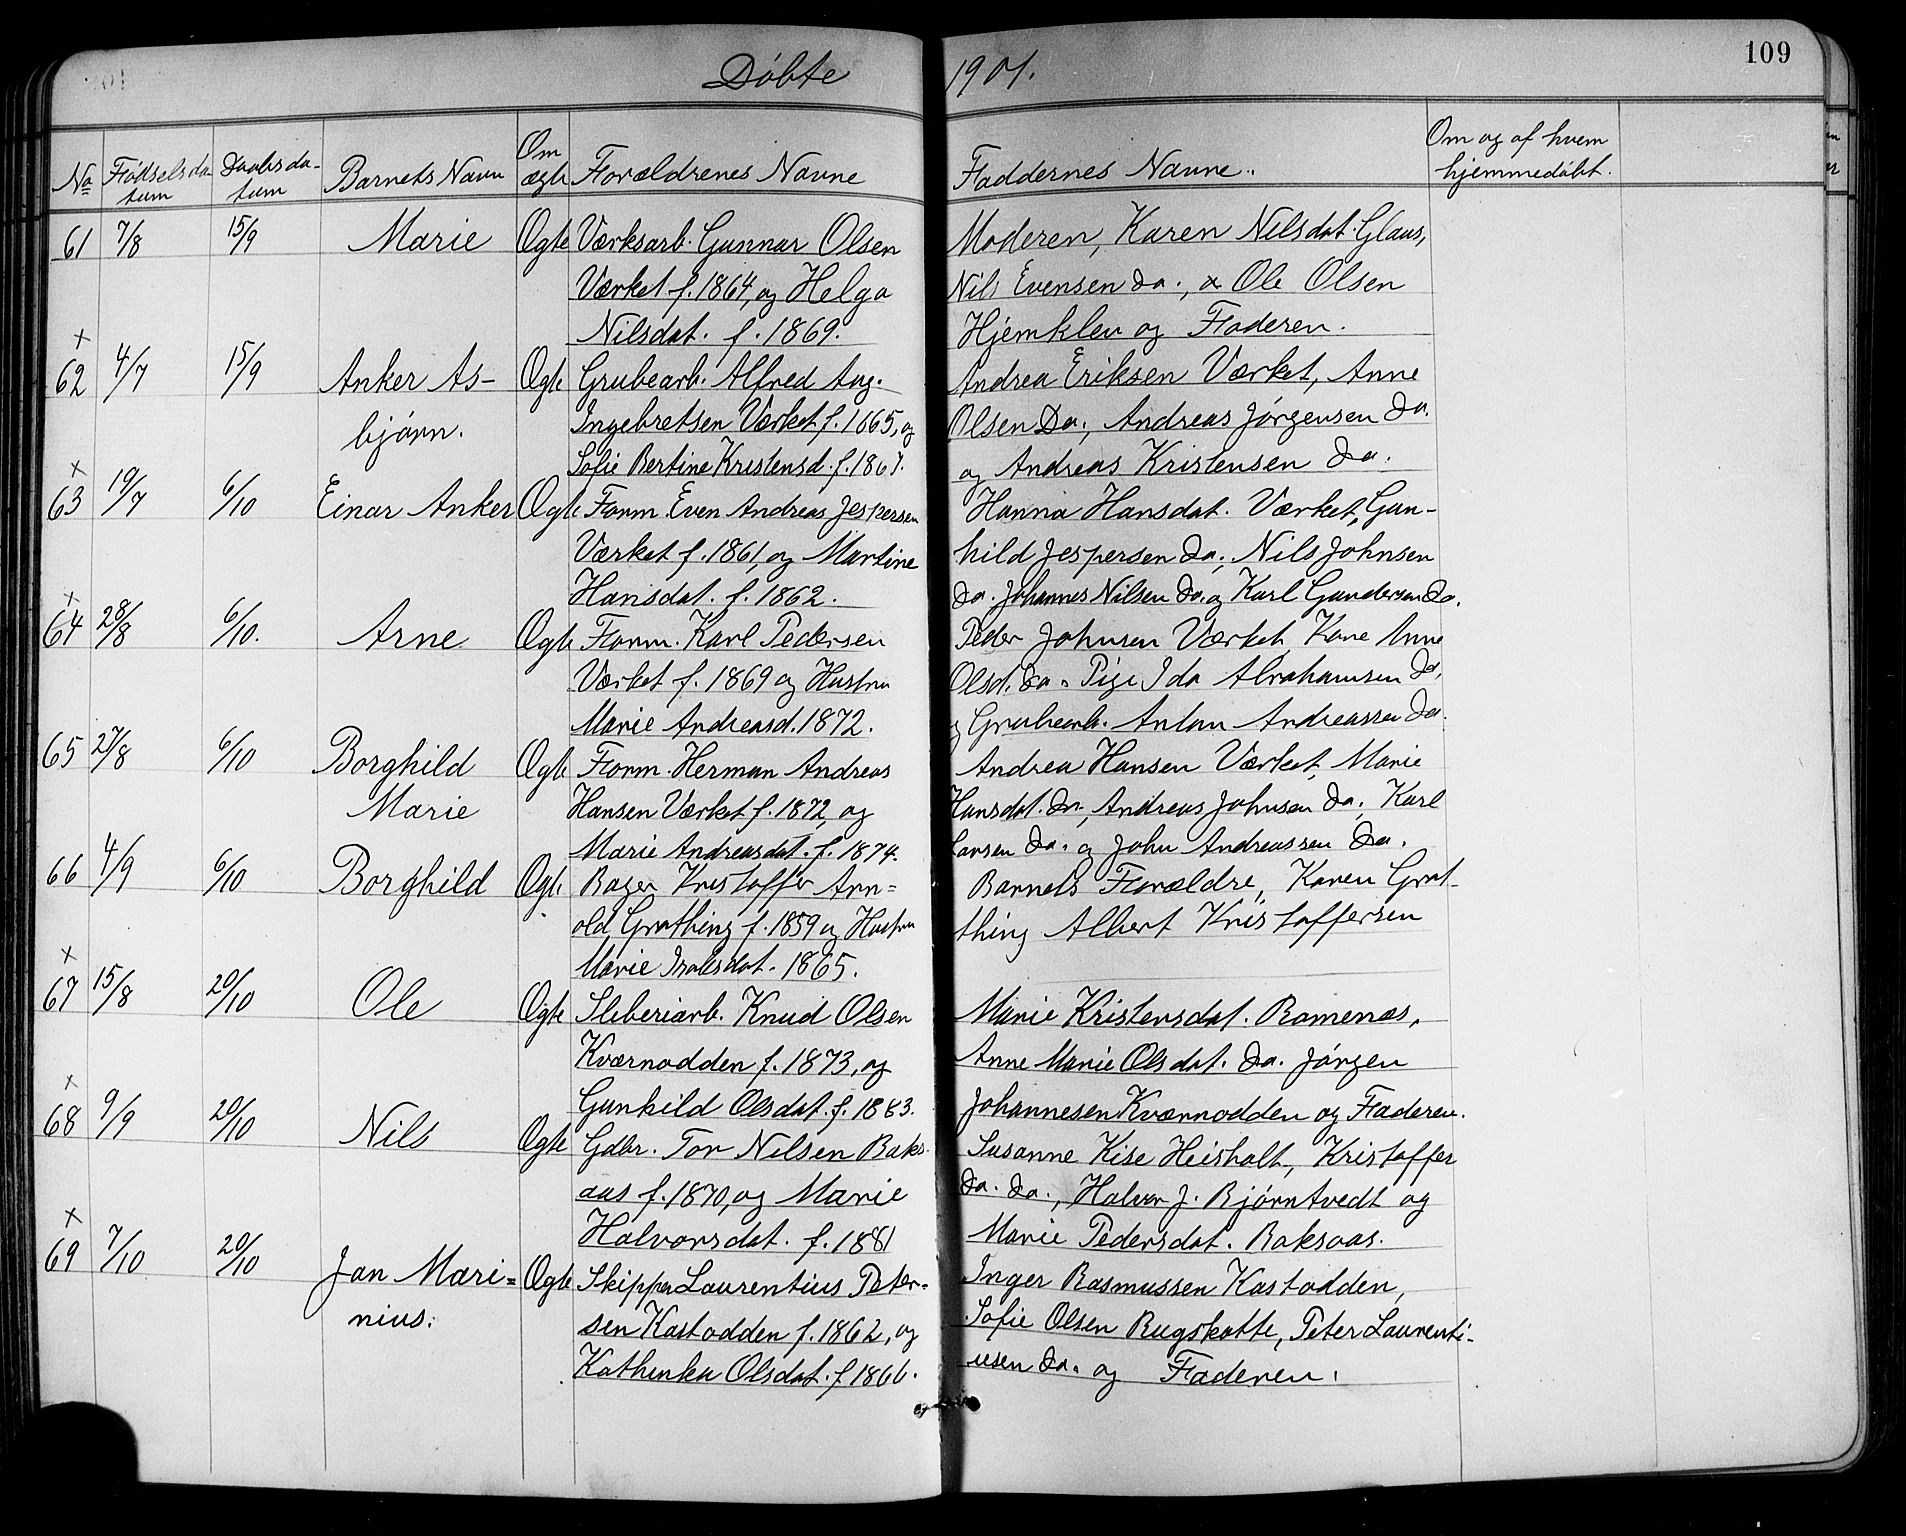 Döbte 1901.
109
No Födselsdatum Daabsdatum Barnets Navn Om ægte Forældrenes Navne Faddernes Navne. Om og af hvem hjemmedöbt.
61 7/8 15/9 Marie Ogte Værksarb. Gunnar Olsen Moderen, Karen Nilsdat. Glaus,
Værket f. 1864, og Helga Nils Evensen do., Ole Olsen
Nilsdat. f. 1869. Hjemklev og Faderen.
x
62 4/7 15/9 Anker As- Ogte Grubearb. Alfred Aug. Andrea Eriksen Værket, Anne
björn. Ingebretsen Værket f. 1865, og Olsen Do., Andreas Jörgensen do.
Sofie Bertine Kristensd. f. 1867. og Andreas Kristensen do.
x
63 19/7 6/10 Einar Anker Ogte Form. Even Andreas Jespersen Hanna Hansdat. Værket, Gun-
Værket f. 1861, og Martine hild Jespersen do., Nils Johnsen
Hansdat. f. 1862. do. Johannes Nilsen do. og Karl Gundersen do.
x
64 28/8 6/10. Arne Ogte Form. Karl Pedersen Peder Johnsen Værket, Kone Anne
Værket f. 1869 og Hustru Olsd. do. Pige Ida Abrahamsen do.
Marie Andreasd. 1872. og Grubearb. Anton Andreassen do.
65 27/8 6/10 Borghild Ogte Form. Herman Andreas Andrea Hansen Værket, Marie
Marie Hansen Værket f. 1872, og Hansdat. do., Andreas Johnsen do., Karl
Marie Andreasdat. f. 1874. Larsen do. og John Andreassen do.
66 4/9 6/10 Borghild Ogte Bager Kristoffer Arn= Barnets Forældre, Karen Grot-
old Grothing f. 1859 og Hustru thing Albert Kristoffersen
Marie 1865.
x
67 15/8 20/10 Ole Ogte Sliberiarb. Knud Olsen Marie Kristensdat. Romenæs,
Kværnodden f. 1873, og Anne Marie Olsdat. do. Jörgen
Gunhild Olsdat. f. 1883. Johannesen Kværnodden og Faderen.
x
68 9/9 20/10 Nils Ogte Gdbr. Tor Nilsen Baks- Susanne Kise Heisholt, Kristoffer
aas f. 1870, og Marie do. do., Halvor J. Björntvedt og
Halvorsdat. f. 1881 Marie Pedersdat. Baksaas.
x
69 7/10 20/10 Jan Mari= Ogte Skipper Laurentius Peter= Inger Rasmussen Kastodden,
nius. sen Kastodden f. 1862, og Sofie Olsen Rugskotte, Peter Laurenti-
Kathinka Olsdat. f. 1866. usen do. og Faderen.